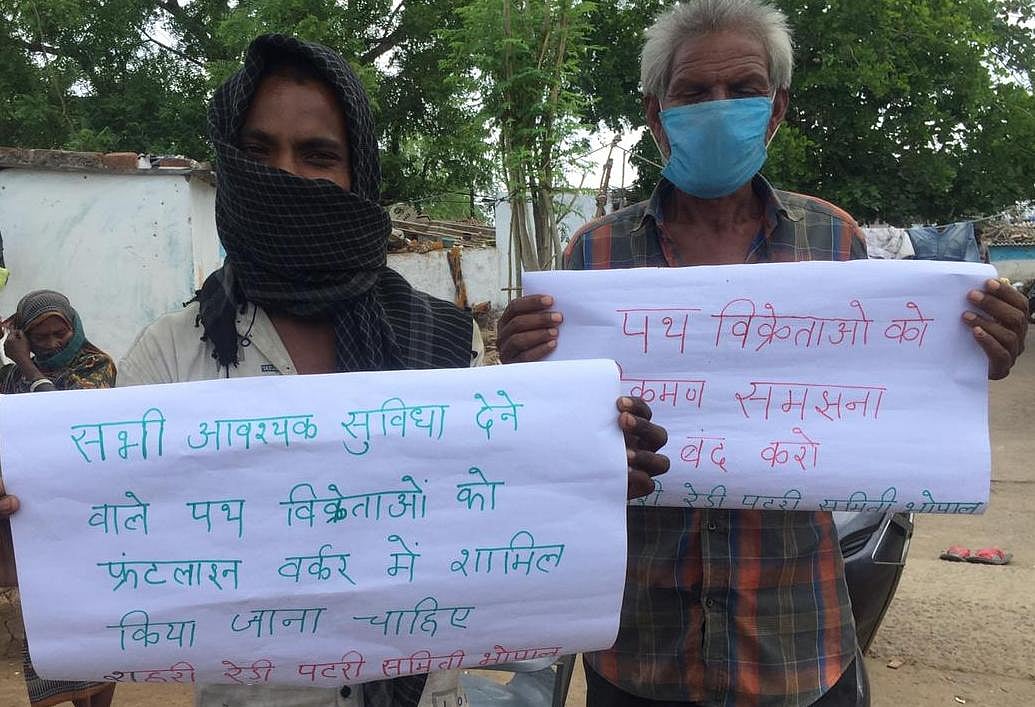 सभी आवश्यक सुविधा देने
वाले पथ विक्रेताओं को
फ्रंटलाइन वर्कर में शामिल
किया जाना चाहिए
शहरी रेडी पटरी समिती भोपाल
पथ विक्रेताओ को
समझना
बंद करो
रेडी पटरी समिती भोपाल